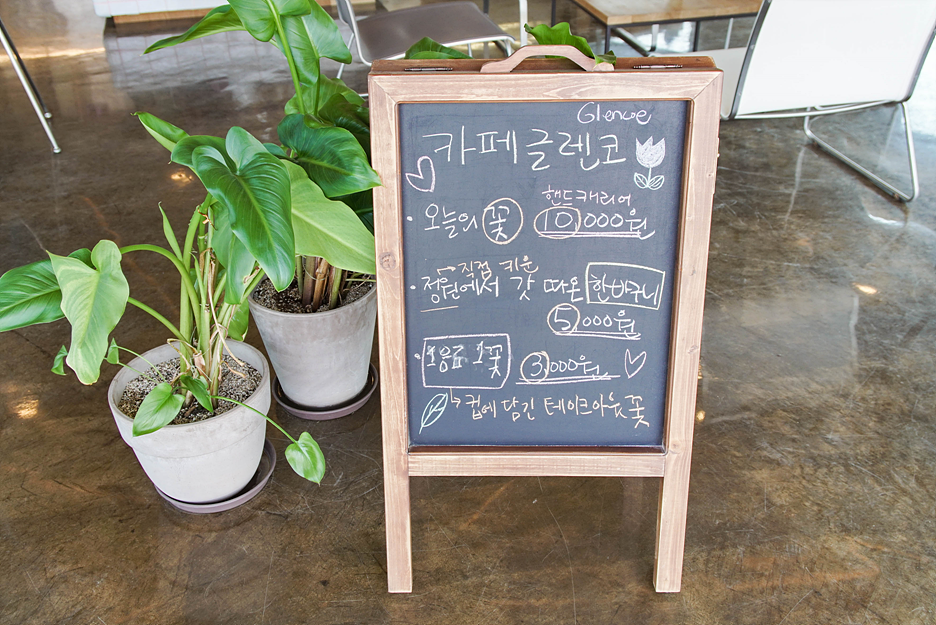 Glencoe
카페글렌코
핸드캐리어
오늘의 꽃 10,000원
직접 키운
정원에서 갓 따온 한바구니
5,000원
1음료 1꽃 3,000원
컵에 담긴 테이크아웃 꽃